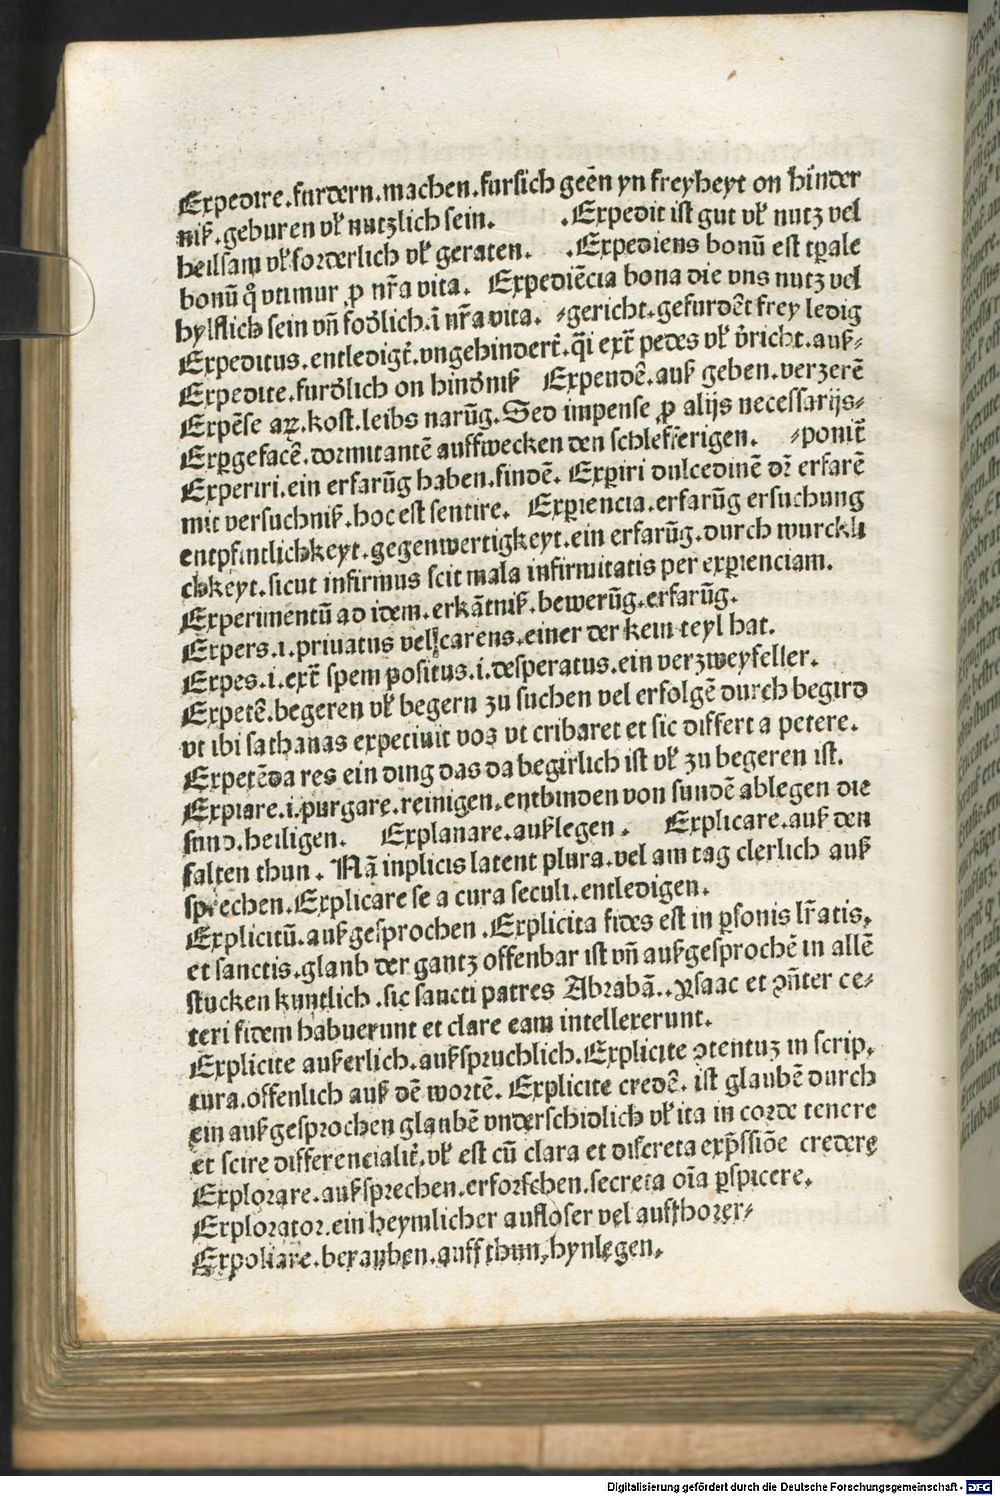 Expedire.furdern.machen.fursich geēn yn freyheyt on hinder
niß.geburen vł nutzlich sein. .Expedit ist gut vł nutz vel
heilsam vł forderlich vł geraten. .Expediens bonū est tꝑale
bonū q̊ vtimur ꝓ nr̄a vita. Expediēcia bona die vns nutz vel
hylflich sein vn̄ fod̕lich.ī nr̄a vita. ⸗gericht.gefurdēt frey ledig
Expeditus.entledigt̄.vngehindert̄.q̄i ext̄ pedes vł v̕richt.auß⸗
Expedite.furd̕lich on hind̕niß Expendē.auß geben.verzerē
Expēse aꝝ.kost.leibs narūg.Sed impense ꝓ alijs necessarijs⸗
Exꝑgefacē.dormitantē auffwecken den schlefferigen. ⸗ponit̄
Experiri.ein erfarūg haben.findē. Exꝑiri dulcedinē dr̄ erfarē
mit versuchniß.hoc est sentire. Exꝑiencia.erfarūg ersuchung
entpfintlichkeyt.gegenwertigkeyt.ein erfarūg.durch wurckli
chkeyt.sicut infirmus scit mala infirmitatis per exꝑienciam.
Experimentū ad idem.erkātniß.bewerūg.erfarūg.
Expers.i.priuatus vel carens.einer der kein teyl hat.
Expes.i.ext̄ spem positus.i.desperatus.ein verzweyfeller.
Expetē.begeren vł begern zu suchen vel erfolgē durch begird
vt ibi sathanas expetiuit vos vt cribaret et sic differt a petere.
Expetēda res ein ding das da begirlich ist vł zu begeren ist.
Expiare.i.purgare.reinigen.entbinden von sundē ablegen die
sund.heiligen. Explanare.außlegen. Explicare.auß den
falten thun. Nā inplicis latent plura.vel am tag clerlich auß
sprechen.Explicare se a cura seculi.entledigen.
Explicitū.außgesprochen .Explicita fides est in ꝑsonis lr̄atis,
et sanctis.glaub der gantz offenbar ist vn̄ außgesprochē in allē
stucken kuntlich .sic sancti patres Abrahā..Ysaac et ꝯn̄ter ce⸗
teri fidem habuerunt et clare eam intellexerunt.
Explicite außerlich.außspruchlich.Explicite ꝯtentuz in scrip,
tura.offenlich auß dē wortē. Explicite credē. ist glaubē durch
ein außgesprochen glaubē vnderschidlich vł ita in corde tenere
et scire differencialit̄.vł est cū clara et discreta exp̄ssiōe credere
Explorare.außsprechen.erforschen.secreta oīa ꝑspicere.
Explorator.ein heymlicher aufloser vel aufhorer⸗
Expoliare.berauben.auffthun,hynlegen.
Digitalisierung gefördert durch die Deutsche Forschungsgemeinschaft - DFG